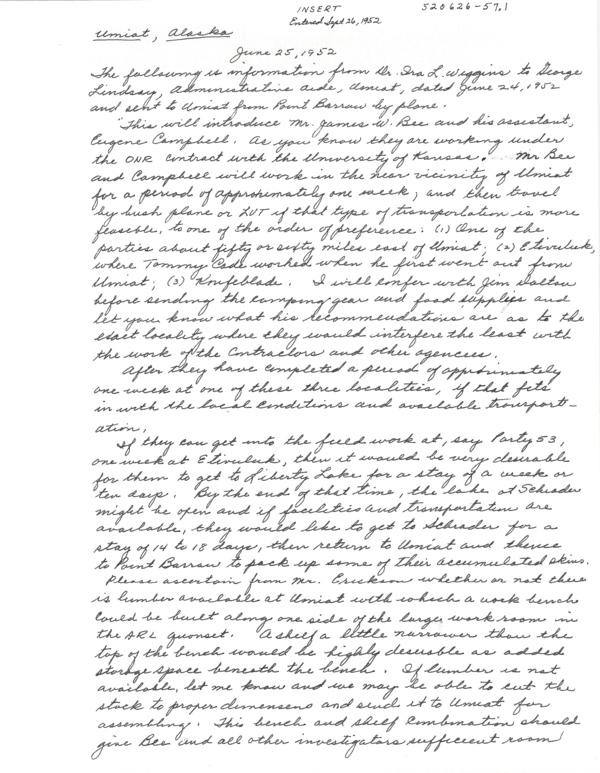 INSERT
520626-57.1
Entered Sept 26, 1952
Umiat, Alaska
June 25, 1952
The following is information from Dr. Ira L. Wiggins to George
Lindsay, Administrative Aide, Umiat, dated June 24, 1952
and sent to Umiat from Point Barrow by plane.
"This will introduce Mr. James W. Bee and his assistant,
Eugene Campbell. As you know they are working under
the ONR contract with the University of Kansas. Mr Bee
and Campbell will work in the near vicinity of Umiat
for a period of approximately one week, and then travel
by bush plane or LVT if that type of transportation is more
feasible, to one of the order of preference: (1) One of the
parties about fifty or sixty miles east of Umiat; (2) Etivuluk,
where Tommy Cade worked when he first went out from
Umiat; (3) Knifeblade. I will confer with Jim Dalton
before sending the camping gear and food supplies and
let you know what his recommendations are as to the
exact locality where they would interfere the least with
the work of the Contractors and other agencies.
After they have completed a period of approximately
one week at one of these three localities, if that fits
in with the local conditions and available transport-
ation,
If they can get into the field work at, say Party 53,
one week at Etivuluk, then it would be very desirable
for them to get to Liberty Lake for a stay of a week or
ten days. By the end of that time, the lake at Schrader
might be open and if facilities and transportation are
available, they would like to get to Schrader for a
stay of 14 to 18 days, then return to Umiat and thence
to Point Barrow to pack up some of their accumulated skins.
Please ascertain from Mr. Erickson whether or not there
is lumber available at Umiat with which a work bench
could be built along one side of the large work room in
the ARL quonset. A shelf a little narrower than the
top of the bench would be highly desirable as added
storage space beneath the bench. If lumber is not
available, let me know and we may be able to cut the
stock to proper dimensions and send it to Umiat for
assembling. This bench and shelf combination should
give Bee and all other investigators sufficient room